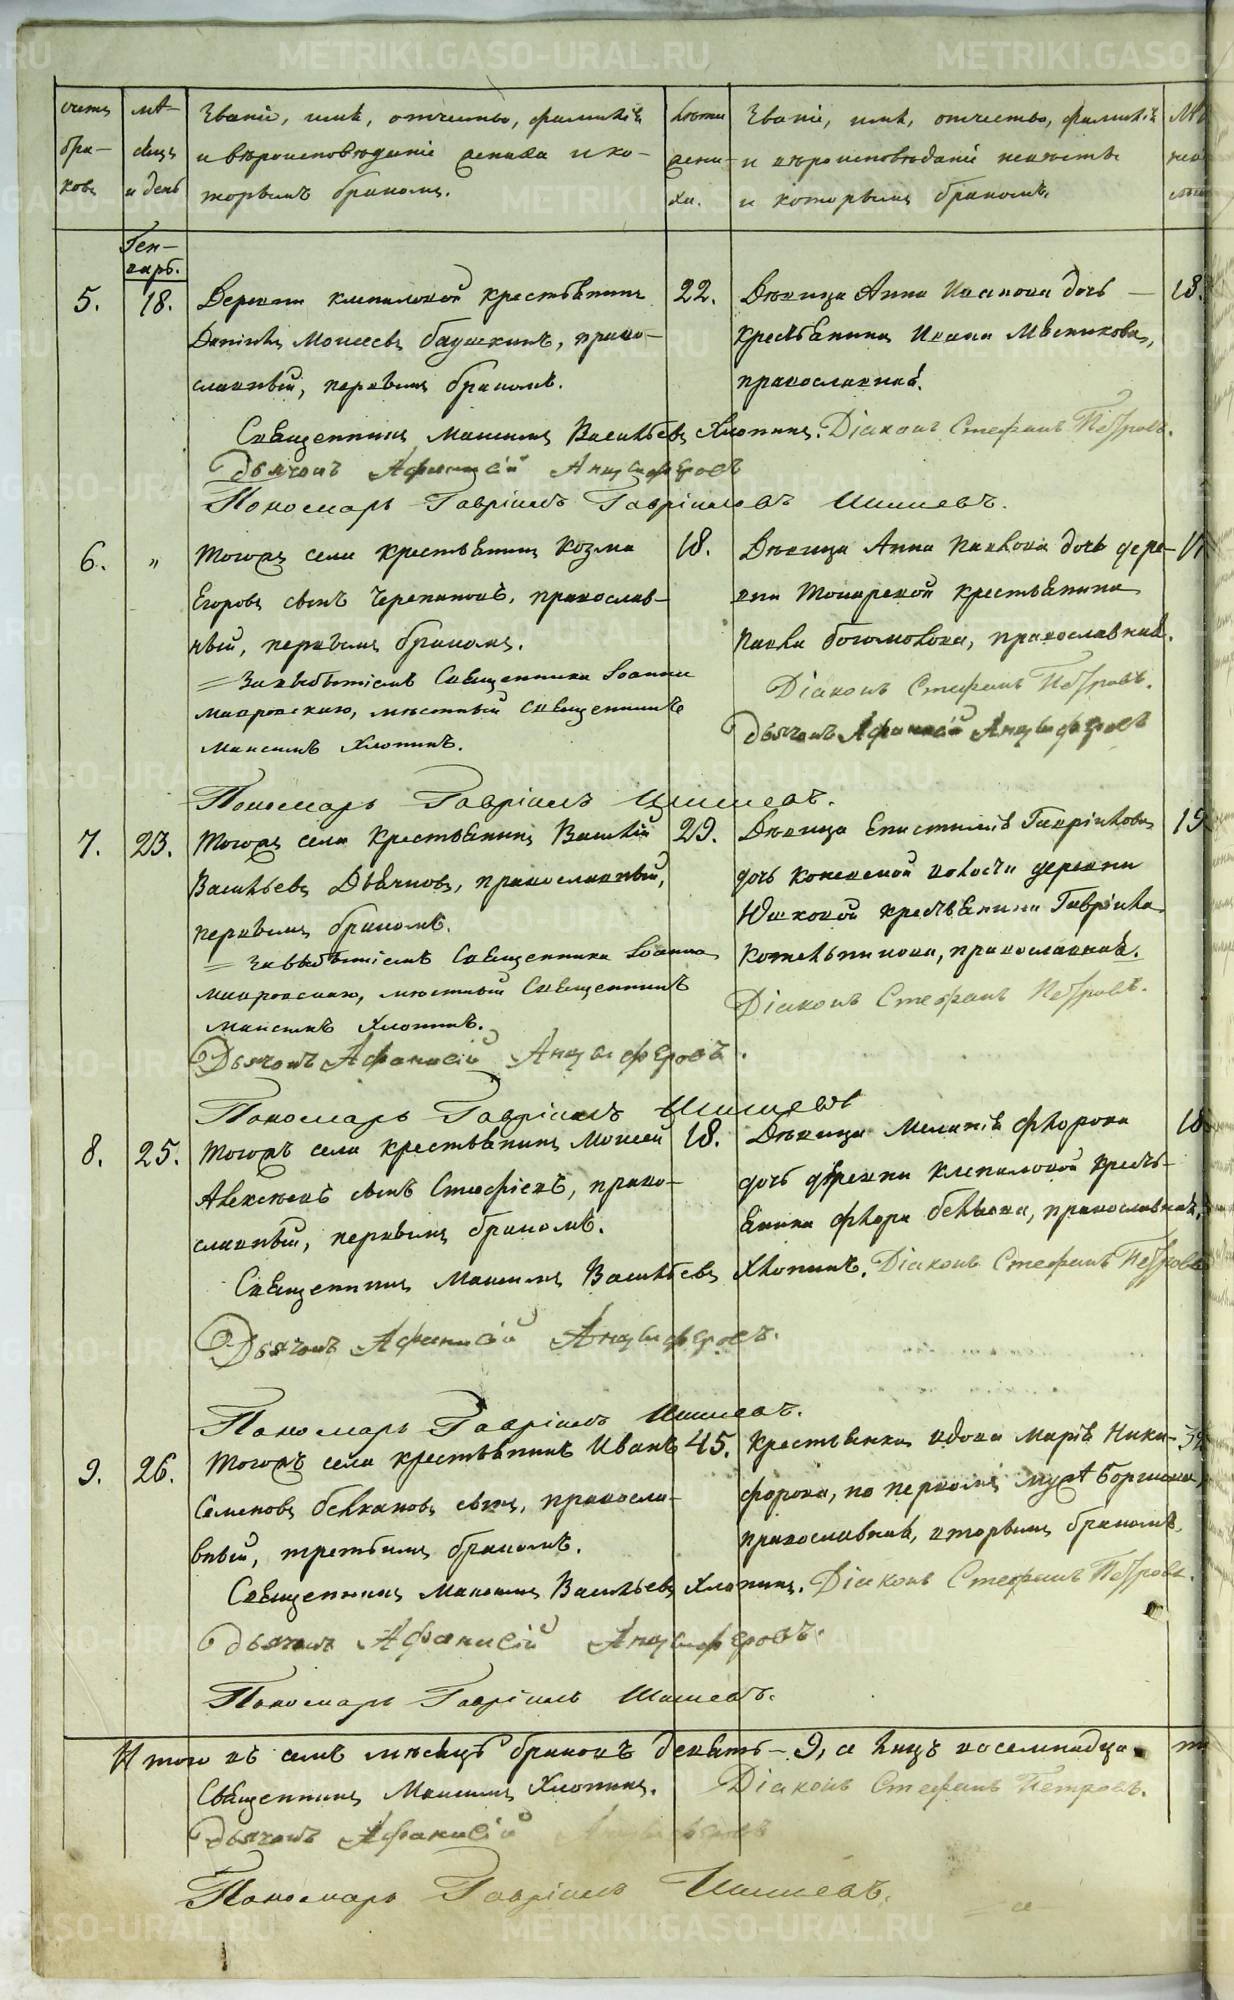 METRIKI.GASO-URAL.RU
счетъ бра-ковъ
мѣ-сяцъ и день
Званіе, имя, отчество, фамилія
и вѣроисповѣданіе жениха и ко-
торымъ бракомъ.
Лѣта жени-ха.
Званіе, имя, отчество, фамилія
и вѣроисповѣданіе невѣсты
и которымъ бракомъ.
Ген-
варь.
5. 18. Деревни Клепаловой крестьянинъ 22. Дѣвица Анна Иванова дочь — 18.
Даніилъ Моисеевъ Баушкинъ, право- крестьянина Ивана Мясникова,
славный, первымъ бракомъ. православная.
Священникъ Максимъ Васильевъ Хлопинъ. Діаконъ Стефанъ Петровъ.
Дьячокъ Афанасій Анцыферовъ
Пономарь Гавріилъ Гавріиловъ Шишевъ.
6. " Тогожъ села крестьянинъ Козма 18. Дѣвица Анна Павлова дочь дере-
Егоровъ сынъ Черепановъ, православ- вни Токаревой крестьянина
ный, первымъ бракомъ. Павла Богомолова, православная.
= За небытіемъ Священника Іоанна Діаконъ Стефанъ Петровъ.
Макровскаго, мѣстный Священникъ Дьячокъ Афанасій Анцыферовъ
Максимъ Хлопинъ.
Пономарь Гавріилъ Шишевъ.
7. 23. Тогожъ села крестьянинъ Василій 29. Дѣвица Епистимія Гавріилова 19
Васильевъ Дьячковъ, православный, дочь Коневской волости деревни
первымъ бракомъ. Юшковой крестьянина Гавріила
= За небытіемъ Священника Іоанна Котельникова, православная.
Макровскаго, мѣстный Священникъ Діаконъ Стефанъ Петровъ.
Максимъ Хлопинъ.
Дьячокъ Афанасій Анцыферовъ.
Пономарь Гавріилъ Шишевъ
8. 25. Тогожъ села крестьянинъ Моисей 18. Дѣвица Меланія Флорова 18
Алексѣевъ сынъ Стафѣевъ, право- дочь деревни Клепаловой кресть-
славный, первымъ бракомъ. янина Флора Бѣлькова, православная,
Священникъ Максимъ Васильевъ Хлопинъ. Діаконъ Стефанъ Петровъ
Дьячокъ Афанасій Анцыферовъ.
Пономарь Гавріилъ Шишевъ.
9. 26. Тогожъ села крестьянинъ Иванъ 45. Крестьянка вдова Марія Ники-
Семеновъ сынъ, правосла- форова, по первомъ мужѣ
вный, третьимъ бракомъ. православная, вторымъ бракомъ.
Священникъ Максимъ Васильевъ Хлопинъ. Діаконъ Стефанъ Петровъ.
Дьячокъ Афанасій Анцыферовъ.
Пономарь Гавріилъ Шишевъ.
Итого въ семъ мѣсяцѣ браковъ девять — 9, а лицъ восемнадцать
Священникъ Максимъ Хлопинъ. Діаконъ Стефанъ Петровъ.
Дьячокъ Афанасій Анцыферовъ
Пономарь Гавріилъ Шишевъ.